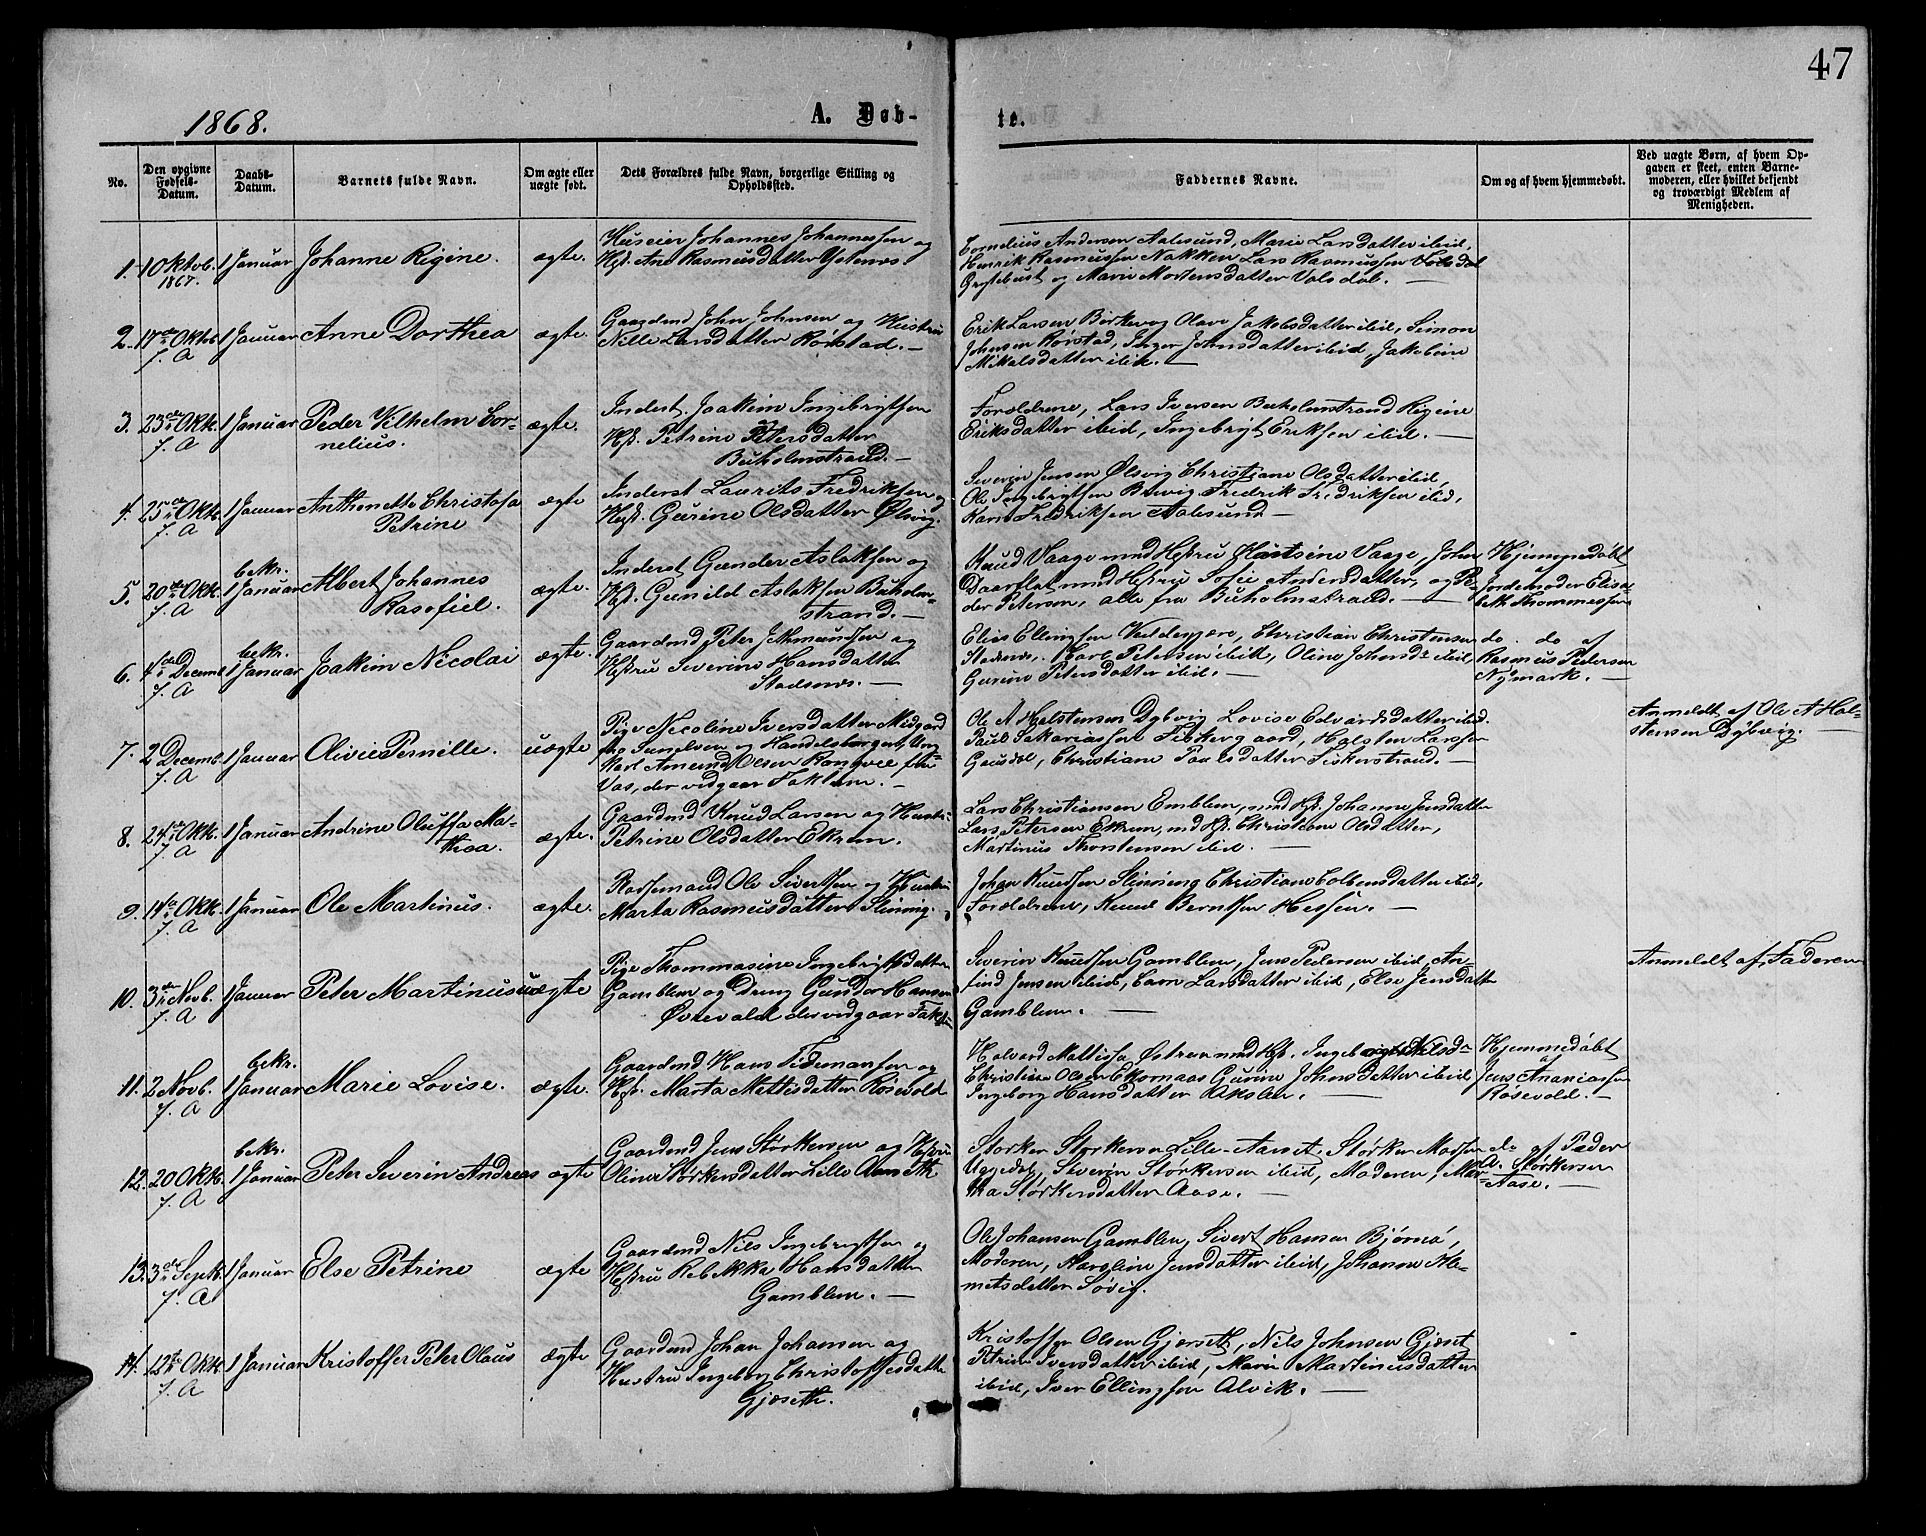 47
1868.
A. Døb-
te.
No.
Den opgivne Fødsels-Datum.
Daabs-Datum.
Barnets fulde Navn.
Om ægte eller uægte født.
Dets Forældres fulde Navn, borgerlige Stilling og Opholdssted.
Faddernes Navne.
Om og af hvem hjemmedøbt.
Ved uægte Børn, af hvem Opgaven er skeet, enten Barnemoderen, eller hvilket bekjendt og troværdigt Medlem af Menigheden.
1. 1 Oktob. 1867. 1 Januar Johanne Rigine. ægte.
Huseier Johannes Johannessen og
Hst. Ane Rasmusdatter Ystenes.
Cornelius Andersen Aalesund, Marie Larsdatter ibid,
Henrik Rasmussen Nakken Lars Rasmussen Volsdal
Grytebust og Marie Mortensdatter Volsdal. —
2. 17de Oktob. f. A 1 Januar Anne Dorthea ægte.
Gaardmd John Johnsen og Hustru
Nille Larsdatter Rørstad. —
Erik Larsen Borkevog Olave Jakobsdatter ibid, Simon
Johnsen Rørstad, Inger Johnsdatter ibid, Jakobine
Mikalsdatter ibid. —
3. 23de Okt. f. A 1 Januar Peder Vilhelm Cor-
nelius. ægte.
Inderst. Joakim Ingebrigtsen
Hst. Petrine Petersdatter
Buholmstrand. —
Forældrene, Lars Iversen Buholmstrand Regine
Eriksdatter ibid, Ingebrigt Eriksen ibid. —
4. 25de Okt. f. A 1 Januar Anthonette Christofa
Petrine ægte
Inderst Laurits Fredriksen og
Hst. Gurine Olsdatter Ølsvig.
Severin Jensen Ølsvig Christiane Olsdatter ibid,
Ole Ingebrigtsen Brevig Fredrik Fredriksen ibid,
Karn Fredriksen Aalesund —
5. 20de Okt. f. A bekr. 1 Januar Albert Johannes
Rasofiel. ægte.
Inderst Gunder Aslaksen og
Hst. Gunild Aslaksen Buholm-
strand. —
Knud Vaage med Hstru Hartsine Vaage, John
Daarflat med Hstru Sofie Andersdatter, og Pe-
der Petersen, alle fra Buholmstrand. —
Hjemmedøbt
af
Jordemoder Elisa-
beth Thommessen
6. 4de Decemb. f. A bekr. 1 Januar Joakim Nicolai ægte.
Gaardmd Peter Aamundsen og
Hstru Severine Hansdatter
Stadsnes. —
Elias Ellingsen Christian Christensen
Stadsnes, Karl Petersen ibid, Oline Johnsdr ibid,
Gurine Petersdatter ibid. —
do. do af
Rasmus Pedersen
Nymark. —
7. 2 Decemb. f. A 1 Januar Olivie Pernille. uægte
Pige Nicoline Iversdatter Midgard
og Handelsborger, Ung
Karl Amund Olsen Rangvei fra
Vos, der vidgaar Faktum. —
Ole A Halstensen Dybvig Lovise Edvardsdatter ibid.
Paul Sakariassen Fiskergaard, Halsten Larssen
Gausdal, Christiane Paulsdatter Fiskerstrand. —
Anmeldt af Ole A Hal-
stensen Dybvig. —
8. 24de Okt. f. A 1 Januar Andrine Oluffa Ma-
thea. ægte.
Gaardmd Knud Larsen og Hustru
Petrine Olsdatter Ekrem.
Lars Christiansen Emblem, med Hst. Johanne Jensdatter
Lars Petersen Ekrem, md Hst. Christiane Olsdatter,
Martinus Thorstensen ibid. —
9. 14de Okt. f. A 1 Januar Ole Martinus. ægte.
Pladsemand Ole Sivertsen og Hustru
Marta Rasmusdatter Slinning.
Johan Knudsen Slinning Christiane Colbensdatter ibid,
Forældrene, Knud Berntsen Hessen. —
10. 3de Novb. f. A 1 Januar Peter Martinus uægte
Pige Thommasine Ingebrigtsdatter
Gamblem og Dreng Gunder Hansen
Øvrevald der vidgaar Faktum
Severin Knudsen Gamblem, Jens Pedersen ibid, An-
find Jensen ibid, Karn Larsdatter ibid, Else Jensdatter
Gamblem. —
Anmeldt af Faderen
11. 2 Novb. f. A bekr. 1 Januar Marie Lovise. ægte.
Gaardmd Hans Tidemansen og
Hst. Marta Mattisdatter Røsevold
Halvard Mattissen Østrem med Hst. Ingeborg Nilsdr
Christian Olsen Ekornaas Gurine Johnsdatter ibid
Ingeborg Hansdatter Akslen. —
Hjemmedøbt
af
Jens Ananiassen
Røsevold. —
12. 20 Okt. f. A bekr. 1 Januar Peter Severin Andreas ægte
Gaardmd Jens Størkersen og Hstru
Oline Størkersdatter Lille Aanseth.
Størker Størkersen Lille-Aanset, Størker Madsen
Uggedal, Severin Størkersen ibid, Moderen, Mar-
tha Størkersdatter Aase. —
do af Peder
A. Størkersen
Aase. —
13. 3de Septb. f. A 1 Januar Else Petrine ægte
Gaardmd Nils Ingebrigtsen og
Hstru Rebekka Hansdatter
Gamblem. —
Ole Johansen Gamblem, Sivert Hansen Bjørnø,
Moderen, Karoline Jensdatter ibid, Johanne Kle-
metsdatter Søvig.
14. 12te Okt. f. A 1 Januar Kristoffer Peter Olaus ægte
Gaardmd Johan Johansen og
Hustru Ingeborg Christoffersdatter
Gjøseth.
Kristoffer Olsen Gjerseth, Nils Johnsen Gjøset
Petrine Iversdatter ibid, Marie Martinusdatter
ibid, Iver Ellingsen Alvik. —